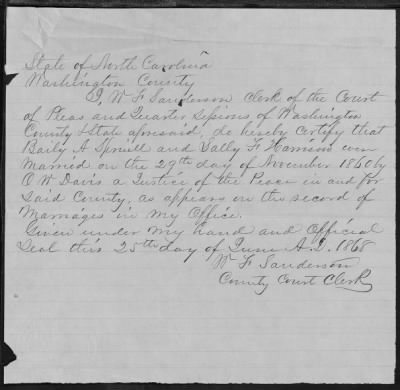 State of North Carolina
Washington County
I, W F Sanderson Clerk of the Court
of Pleas and Quarter Sessions of Washington
County & State aforesaid, do hereby certify that
Baily A Spruill and Sally F Harrison were
Married on the 29th day of November 1860 by
O W Davis a Justice of the Peace in and for
Said County, as appears in the record of
Marriages in my Office.
Given under my hand and Official
Seal this 25th day of June A.D. 1868
W F Sanderson
County Court Clerk